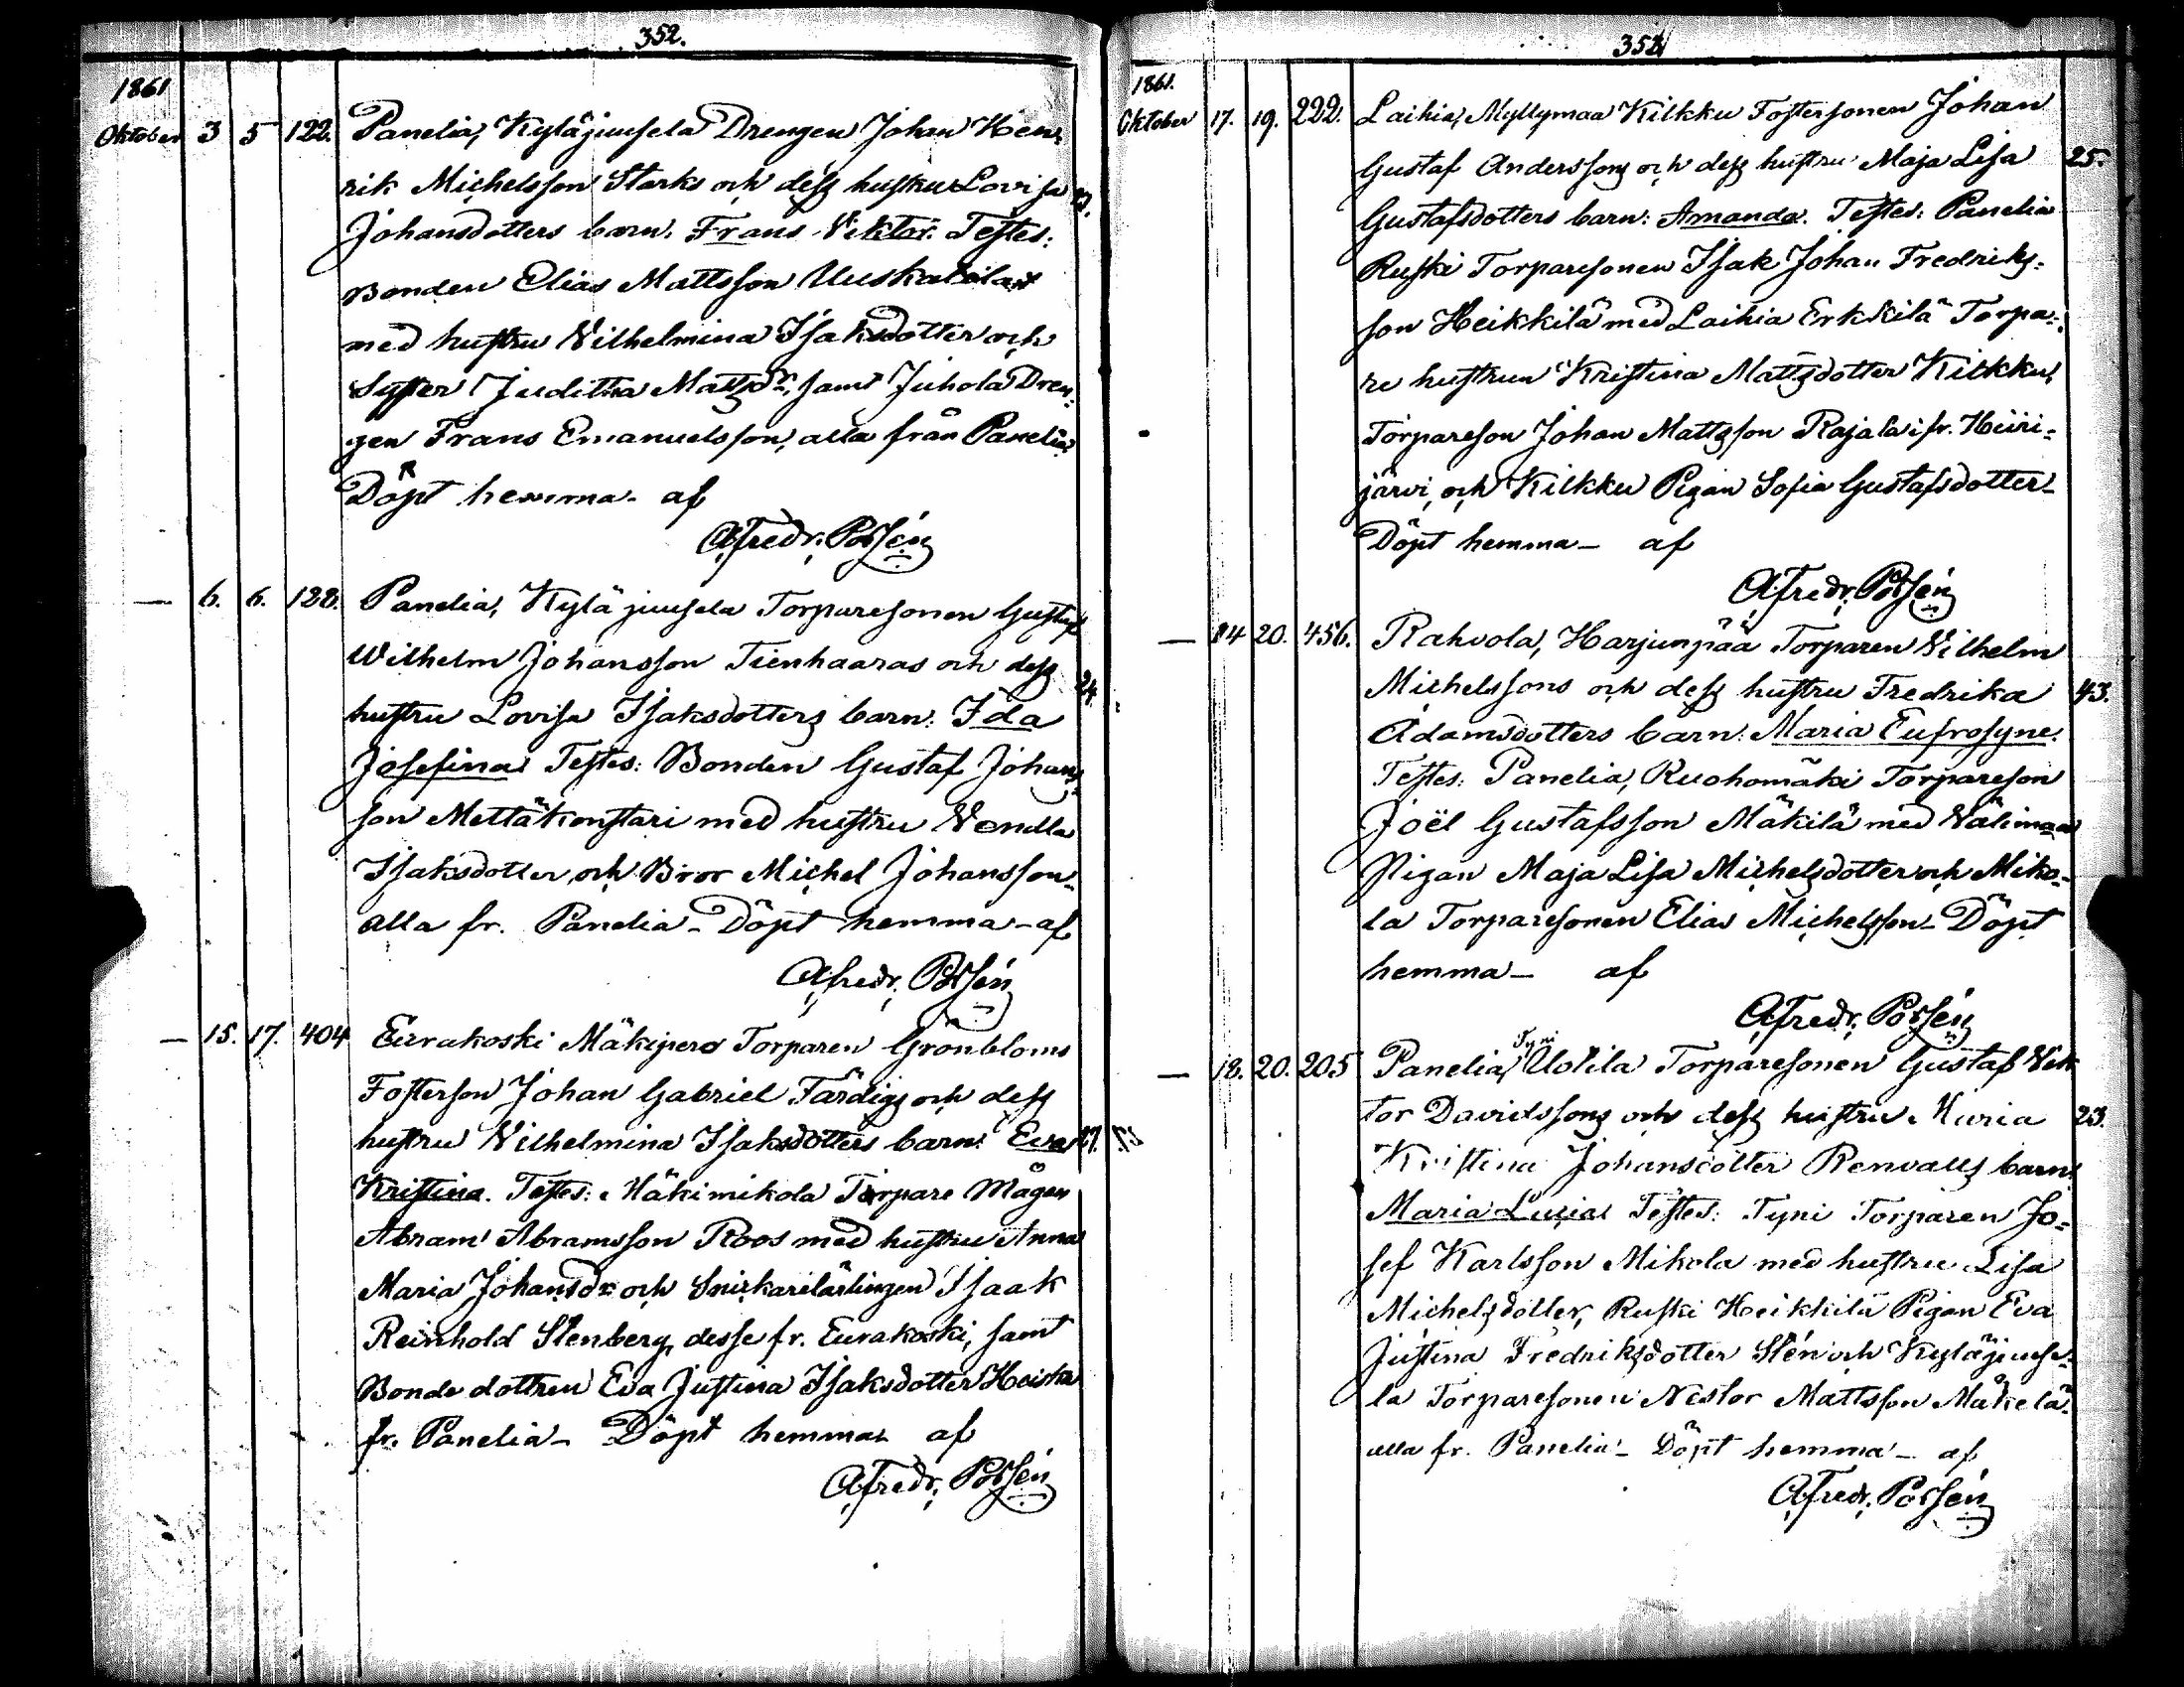 352.
1861
Oktober 3 5 122. Panelia, Kyläjuusela Drengen Johan Hen-
rik Michelsson Starks och dess hustru Lovisa
Johansdotters barn: Frans Viktor. Testes:
Bonden Elias Mattsson Uuskartila
med hustru Vilhelmina Isaksdotter och
Syster Juditha Mattsdr, samt Juhola Dren-
gen Frans Emanuelsson, alla från Panelia
Döpt hemma - af
A. Fredr. Polsén
— 6. 6. 128. Panelia, Kyläjuusela Torparesonen Gustaf
Wilhelm Johansson Tienhaaras och dess 24.
hustru Lovisa Isaksdotters barn: Ida
Josefina Testes: Bonden Gustaf Johans-
son Mettätonstari med hustru Vendla
Isaksdotter, och Bror Michel Johansson-
alla fr. Panelia - Döpt hemma - af
A. Fredr. Polsén
— 15. 17. 404 Eurakoski Mäkipere Torparen Grönbloms
Fosterson Johan Gabriel Färdigs och dess
hustru Vilhelmina Isaksdotters barn: Eva
Kristina. Testes: Mäkimikola Torpare Mågen
Abram Abramsson Roos med hustru Anna
Maria Johansdr och Snickarelärlingen Isaak
Reinhold Stenberg, desse fr. Eurakoski, samt
Bonde dottren Eva Justina Isaksdotter Heiska
fr. Panelia - Döpt hemma - af
A. Fredr. Polsén
352
1861.
Oktober 17. 19. 222. Laihia, Myllymaa Kilkku Fostersonen Johan
Gustaf Anderssons och dess hustru Maja Lisa 25.
Gustafsdotters barn: Amanda. Testes: Panelia
Ruski Torparesonen Isak Johan Fredriks-
son Heikkilä med Laihia Erkkilä Torpa-
re hustrun Kristina Mattsdotter Kilkku,
Torpareson Johan Mattsson Rajala ifr. Hiiri-
järvi, och Kilkku Pigan Sofia Gustafsdotter-
Döpt hemma - af
A. Fredr. Polsén
— 14 20. 456. Rahvola, Harjunpää Torparen Vilhelm
Michelssons och dess hustru Fredrika 43.
Adamsdotters barn: Maria Eufrosyne.
Testes: Panelia, Ruohomäki Torpareson
Joël Gustafsson Mäkilä med Välimaa
Pigan Maja Lisa Michelsdotter och Miko-
la Torparesonen Elias Michelsson - Döpt
hemma - af
A. Fredr. Polsén
Tyni
— 18. 20. 205 Panelia, Uotila Torparesonen Gustaf Vik-
tor Davidssons och dess hustru Maria 23.
Kristina Johansdotter Renvalls barn:
Maria Lucia Testes: Tyni Torparen Jo-
sef Karlsson Mikola med hustru Lisa
Michelsdotter, Ruski Heikkilä Pigan Eva
Justina Fredriksdotter Stén och Kyläjuuse-
la Torparesonen Nestor Mattsson Mäkelä
alla fr. Panelia - Döpt hemma - af
A. Fredr. Polsén